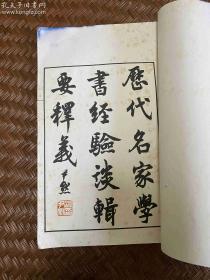 歷代名家學
書經驗談輯
要釋義 尹默
孔夫子旧书网